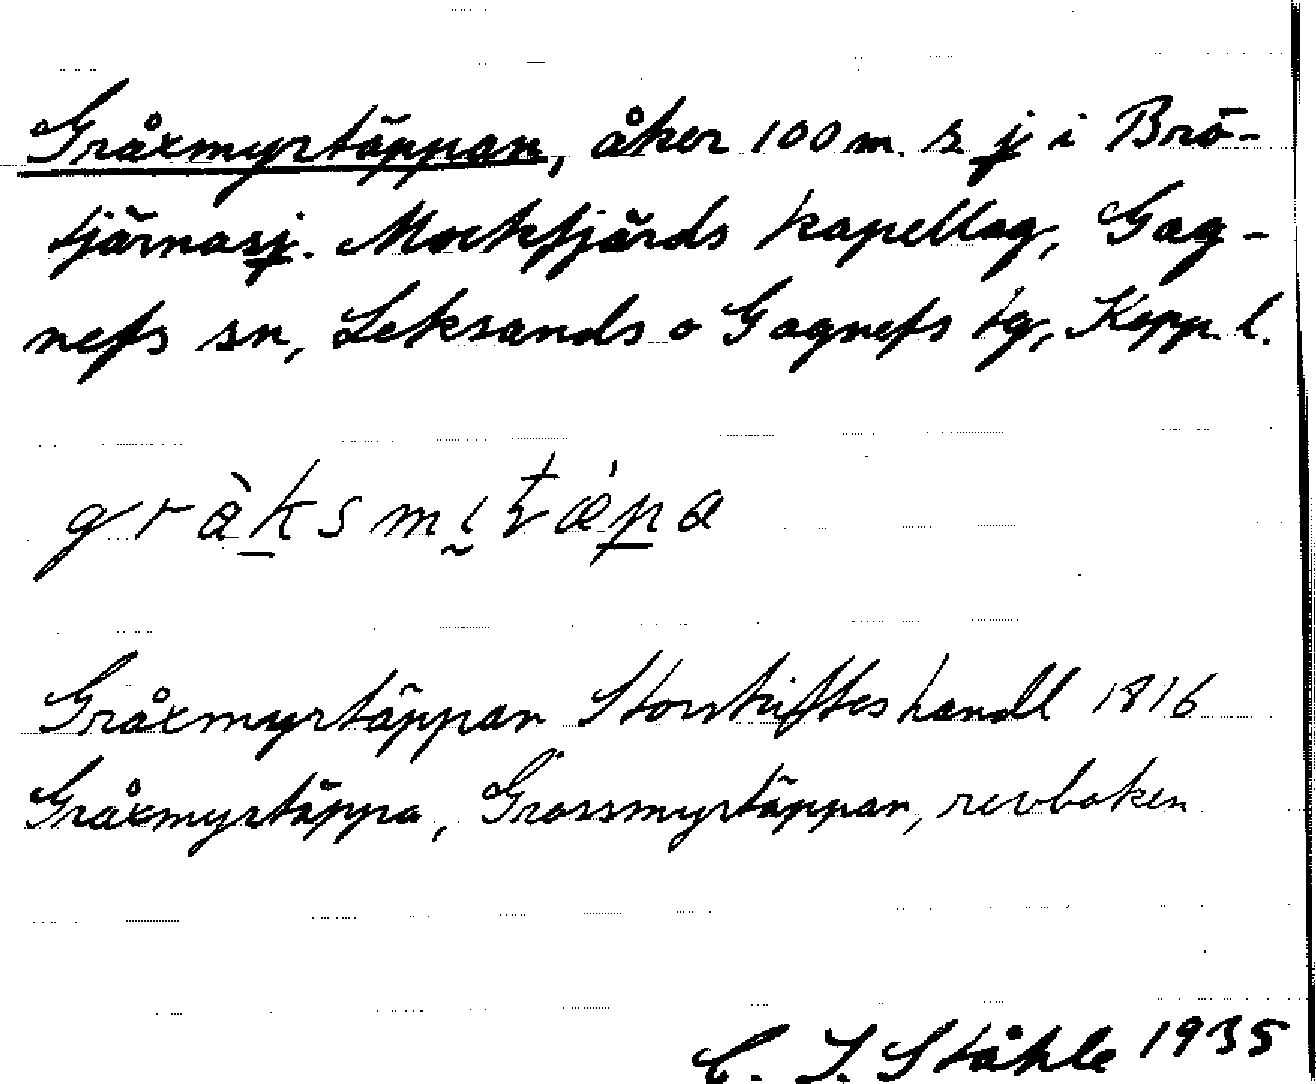 Gråxmyrtäppan, åker 100 m. s j i Brö-
tjärnasj. Mockfjärds kapellag, Gag-
nefs sn, Leksands o Gagnefs tg, Kopp. l.
gràksmitǽpa
Gråxmyrtäppan Storskifteshandl 1816
Gråxmyrtäppa, Grossmyrtäppan, revboken
C. I. Ståhle 1935